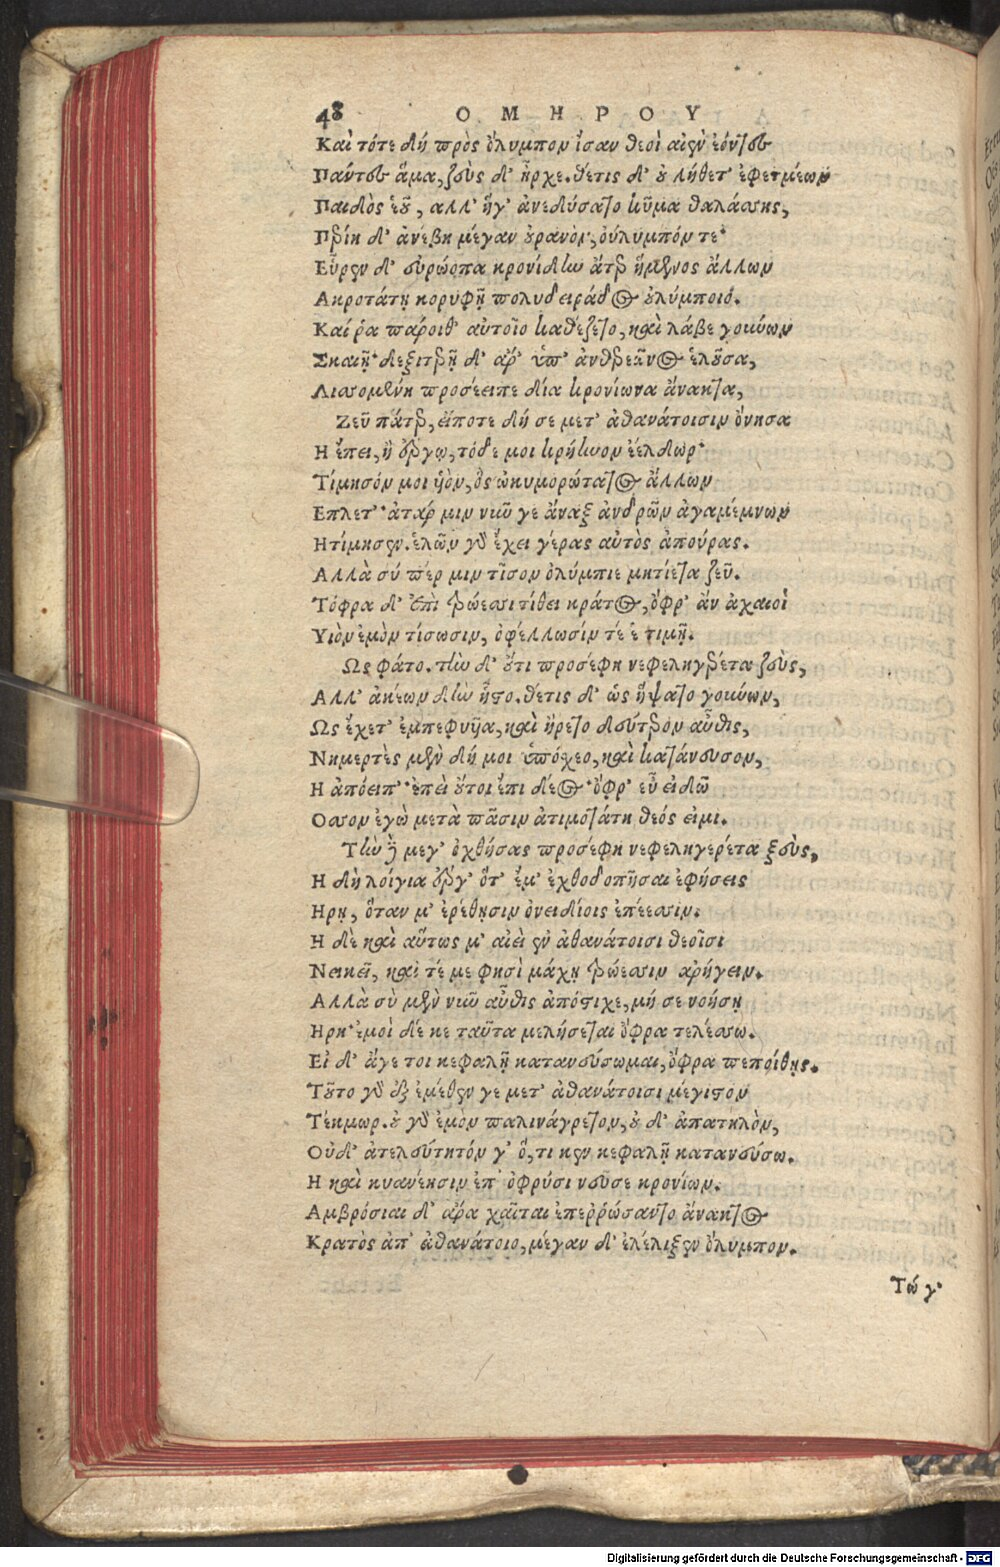 48 ΟΜΗΡΟΥ
Καὶ τότε δὴ πρὸς ὄλυμπον ἴσαν θεοὶ αἰὲν ἐόντες
Πάντες ἅμα, ζεὺς δ' ἦρχε. θέτις δ' οὐ λήθετ' ἐφετμέων
Παιδὸς ἑοῦ, αλλ' ἥγ' ἀνεδύσατο κῦμα θαλάσσης,
Πρίη δ' ἀνέβη μέγαν οὐρανὸν, οὐλυμπόν τε·
Εὗρεν δ' εὐρύοπα κρονίδην ἄτερ ἥμενος ἄλλων
Ακροτάτῃ κορυφῇ πολυδειράδος οὐλύμποιό.
Καί ῥα πάροιθ' αὐτοῖο καθέζετο, καὶ λάβε γουνων
Σκαιῇ· δεξιτερῇ δ' αρ' ὑπ' ἀνθρεῶνος ἑλοῦσα,
Λισσομένη προσέειπε δία κρονίωνα ἄνακτα,
Ζεῦ πάτερ, εἴποτε δή σε μετ' ἀθανάτοισιν ὄνησα
Η ἔπει, ἢ ἔργῳ, τόδε μοι κρήηνον ἐέλδωρ·
Τίμησόν μοι ὑὸν, ὃς ὠκυμορώτατος ἄλλων
Επλετ'· ἀτάρ μιν νῦν γε ἄναξ ἀνδρῶν ἀγαμέμνων
Ητίμησεν. ἑλὼν γὰρ ἔχει γέρας αὐτὸς ἀπούρας.
Αλλὰ σύ πέρ μιν τῖσον ὀλύμπιε μητίετα ζεῦ.
Τόφρα δ' ἐπὶ τρώεσσι τίθει κράτος, ὄφρ' ἄν ἀχαιοὶ
Υἱὸν ἐμὸν τίσωσιν, ὀφέλλωσίν τέ ἑ τιμῇ.
Ως φάτο. τὴν δ' οὔτι προσέφη νεφεληγερέτα ζεὺς,
Αλλ' ἀκέων δὴν ἧστο. θέτις δ' ὡς ἥψατο γουνων,
Ως ἔχετ' ἐμπεφυῖα, καὶ ἤρετο δεύτερον αὖθις,
Νημερτὲς μὲν δή μοι ὑπόχεο, καὶ κατάνευσον,
Η ἀπόειπ'· ἐπεὶ οὔτοι ἔπι δέος· ὄφρ' εὖ εἰδῶ
Οσσον ἐγὼ μετὰ πᾶσιν ἀτιμοτάτη θεός εἰμι.
Τὴν δὲ μεγ' ὀχθήσας προσέφη νεφεληγερέτα ζεὺς,
Η δὴ λοίγια ἔργ' ὅτ' ἔμ' ἐχθοδοπῆσαι ἐφήσεις
Ηρῃ, ὅταν μ' ἐρέθῃσιν ὀνειδίοις ἐπέεσσιν.
Η δὲ καὶ αὔτως μ' αἰεὶ ἐν ἀθανάτοισι θεοῖσι
Νεικεῖ, καί τέ με φησὶ μάχῃ τρώεσσιν αρήγειν.
Αλλὰ σὺ μὲν νῦν αὖθις ἀπόστιχε, μή σε νοήσῃ
Ηρη· ἐμοὶ δέ κε ταῦτα μελήσεται ὄφρα τελέσσω.
Εἰ δ' ἄγε τοι κεφαλῇ κατανεύσωμαι, ὄφρα πεποίθῃς.
Τοῦτο γὰρ ἐξ ἐμέθεν γε μετ' ἀθανάτοισι μέγιστον
Τέκμωρ. οὐ γὰρ ἐμὸν παλινάγρετον, οὐ δ' ἀπατηλὸν,
Οὐδ' ἀτελεύτητόν γ' ὅ, τι κεν κεφαλῇ κατανεύσω.
Η καὶ κυανέηισιν ἐπ' ὀφρύσι νεῦσε κρονίων.
Αμβρόσιαι δ' αρα χαῖται ἐπεῤῥώσαντο ἄνακτος
Κρατὸς ἀπ' ἀθανάτοιο, μέγαν δ' ἐλέλιξεν ὄλυμπον.
Τώ γ'
Digitalisierung gefördert durch die Deutsche Forschungsgemeinschaft - DFG